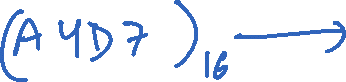 (A4D7)₁₆ →